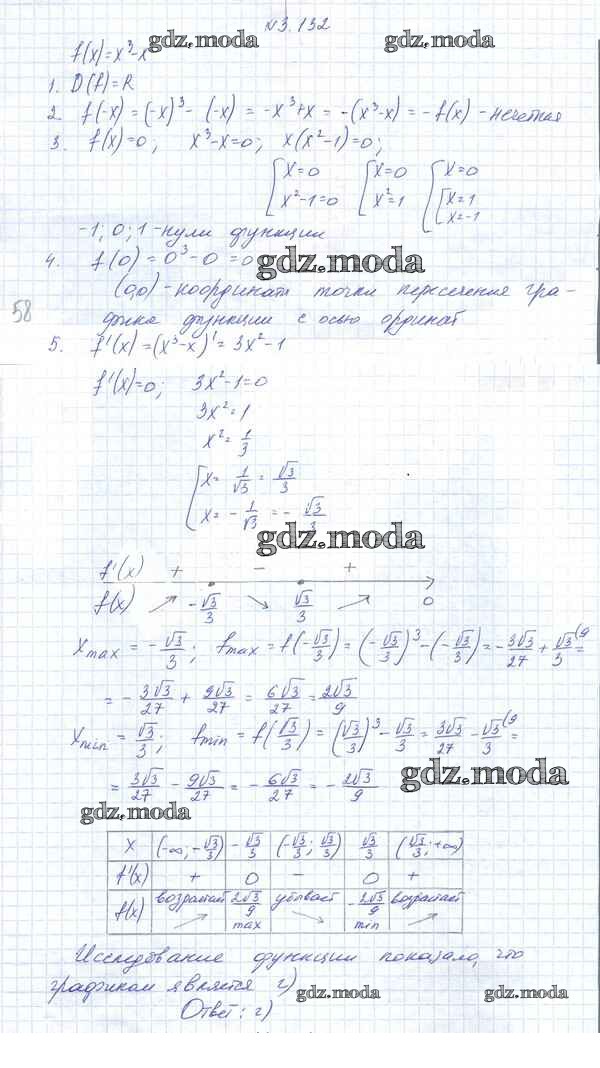 №3.132
gdz.moda
gdz.moda
f(x)=x³-x
1. D(f)=R
2. f(-x)=(-x)³-(-x)=-x³+x=-(x³-x)=-f(x) - нечетная
3. f(x)=0; x³-x=0; x(x²-1)=0;
[x=0 [x=0 [x=0
x²-1=0 x²=1 [x=1
x=-1
-1; 0; 1 - нули функции
4. f(0)=0³-0=0
gdz.moda
(0;0) - координаты точки пересечения гра-
58
фика функции с осью ординат
5. f'(x)=(x³-x)'=3x²-1
f'(x)=0; 3x²-1=0
3x²=1
x²=1/3
[x=1/√3=√3/3
x=-1/√3=-√3/3
gdz.moda
f'(x) + - +
f(x) ↗ -√3/3 ↘ √3/3 ↗ 0
x max = -√3/3; f max = f(-√3/3)=(-√3/3)³-(-√3/3)=-3√3/27+√3/3(9=
=-3√3/27+9√3/27=6√3/27=2√3/9
x min = √3/3; f min = f(√3/3)=(√3/3)³-√3/3=3√3/27-√3/3(9=
=3√3/27-9√3/27=-6√3/27=-2√3/9
gdz.moda
gdz.moda
x (-∞;-√3/3) -√3/3 (-√3/3;√3/3) √3/3 (√3/3;+∞)
f'(x) + 0 - 0 +
f(x) возрастает ↗ 2√3/9 max убывает ↘ -2√3/9 min возрастает ↗
Исследование функции показало, что
графиком является г)
gdz.moda
gdz.moda
Ответ: г)